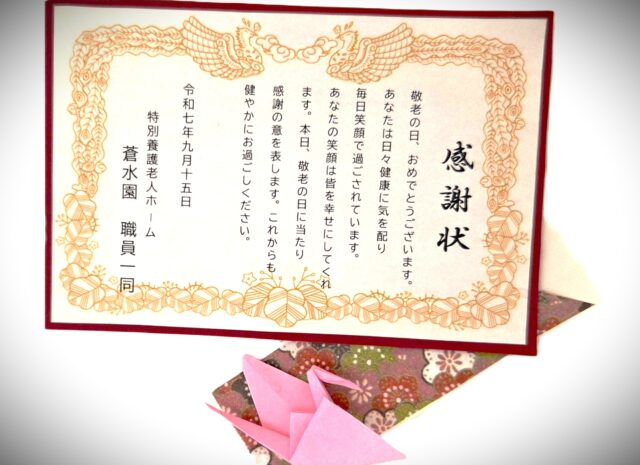 感謝状
敬老の日、おめでとうございます。
あなたは日々健康に気を配り
毎日笑顔で過ごされています。
あなたの笑顔は皆を幸せにしてくれ
ます。本日、敬老の日に当たり
感謝の意を表します。これからも
健やかにお過ごしください。
令和七年九月十五日
特別養護老人ホーム
蒼水園　職員一同